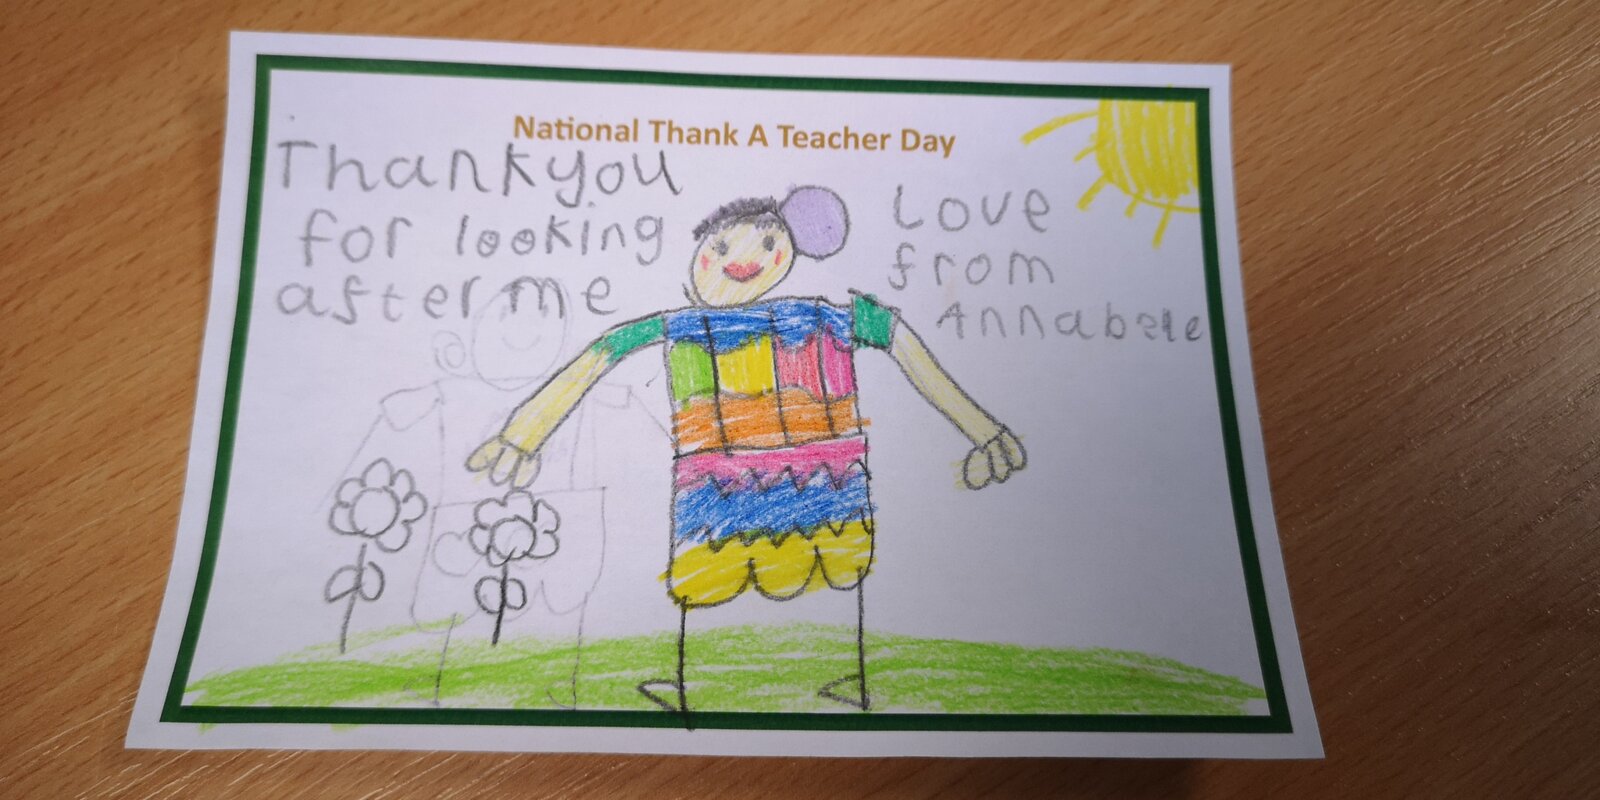 National Thank A Teacher Day
Thankyou
for looking
after me
Love
from
Annabele